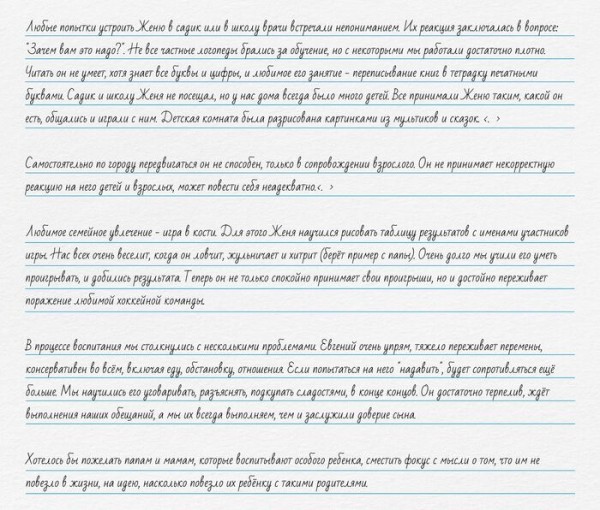 Любые попытки устроить Женю в садик или в школу врачи встречали непониманием. Их реакция заключалась в вопросе:
"Зачем вам это надо?". Не все частные логопеды брались за обучение, но с некоторыми мы работали достаточно плотно.
Читать он не умеет, хотя знает все буквы и цифры, и любимое его занятие - переписывание книг в тетрадку печатными
буквами. Садик и школу Женя не посещал, но у нас дома всегда было много детей. Все принимали Женю таким, какой он
есть, общались и играли с ним. Детская комната была разрисована картинками из мультиков и сказок. <. >
Самостоятельно по городу передвигаться он не способен, только в сопровождении взрослого. Он не принимает некорректную
реакцию на него детей и взрослых, может повести себя неадекватно.<. >
Любимое семейное увлечение - игра в кости. Для этого Женя научился рисовать таблицу результатов с именами участников
игры. Нас всех очень веселит, когда он ловчит, жульничает и хитрит (берёт пример с папы). Очень долго мы учили его уметь
проигрывать, и добились результата. Теперь он не только спокойно принимает свои проигрыши, но и достойно переживает
поражение любимой хоккейной команды.
В процессе воспитания мы столкнулись с несколькими проблемами. Евгений очень упрям, тяжело переживает перемены,
консервативен во всём, включая еду, обстановку, отношения. Если попытаться на него "надавить", будет сопротивляться ещё
больше. Мы научились его уговаривать, разъяснять, подкупать сладостями, в конце концов. Он достаточно терпелив, ждёт
выполнения наших обещаний, а мы их всегда выполняем, чем и заслужили доверие сына.
Хотелось бы пожелать папам и мамам, которые воспитывают особого ребенка, сместить фокус с мысли о том, что им не
повезло в жизни, на идею, насколько повезло их ребёнку с такими родителями.